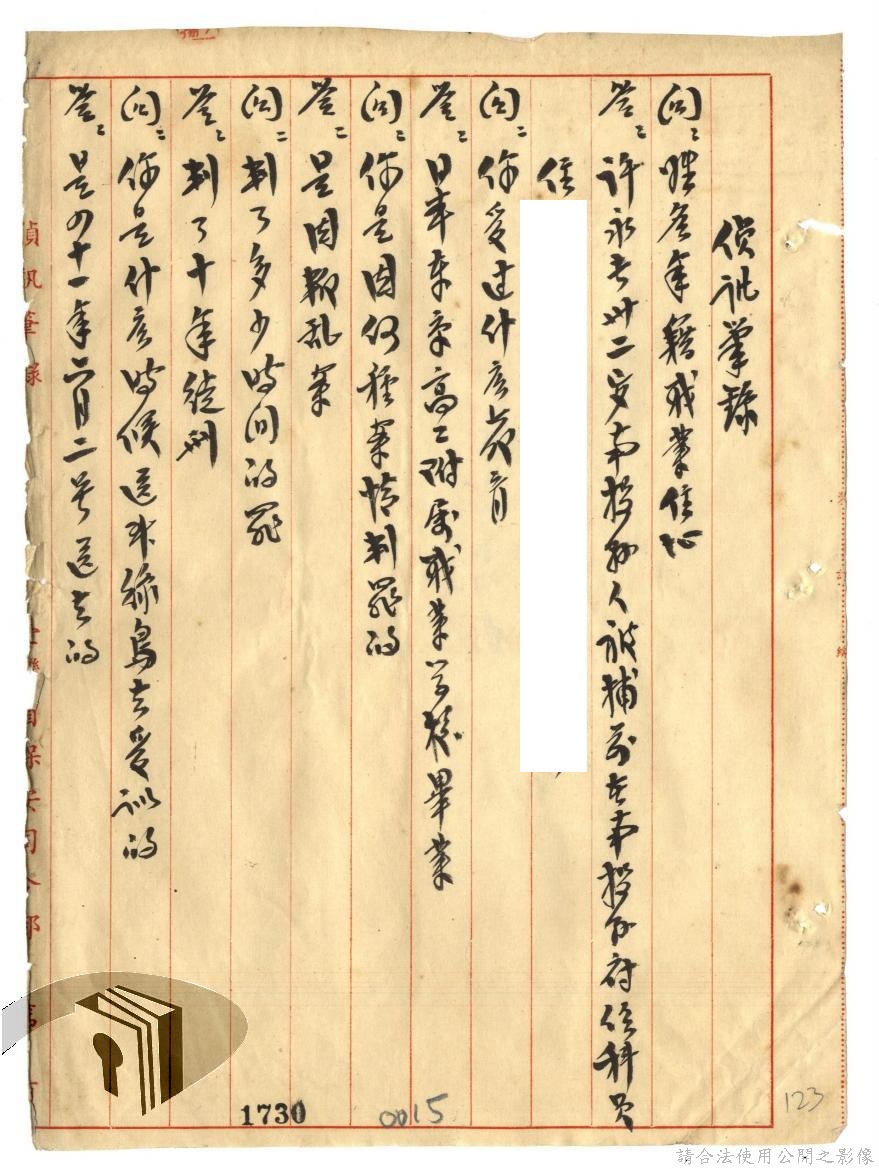 偵訊筆錄
問：姓名年籍職業住址
答：許永長卅二岁南投縣人被捕前在南投縣府任科員
住
問：你受过什么教育
答：日本東京高工附属職業学校畢業
問：你是因何種案情判罪的
答：是因叛乱案
問：判了多少時间的罪
答：判了十年徒刑
問：你是什么時候送來綠島去受訓的
答：是四十一年二月二号送去的
偵訊筆錄
保安司令部
1730
0015
123
請合法使用公開之影像